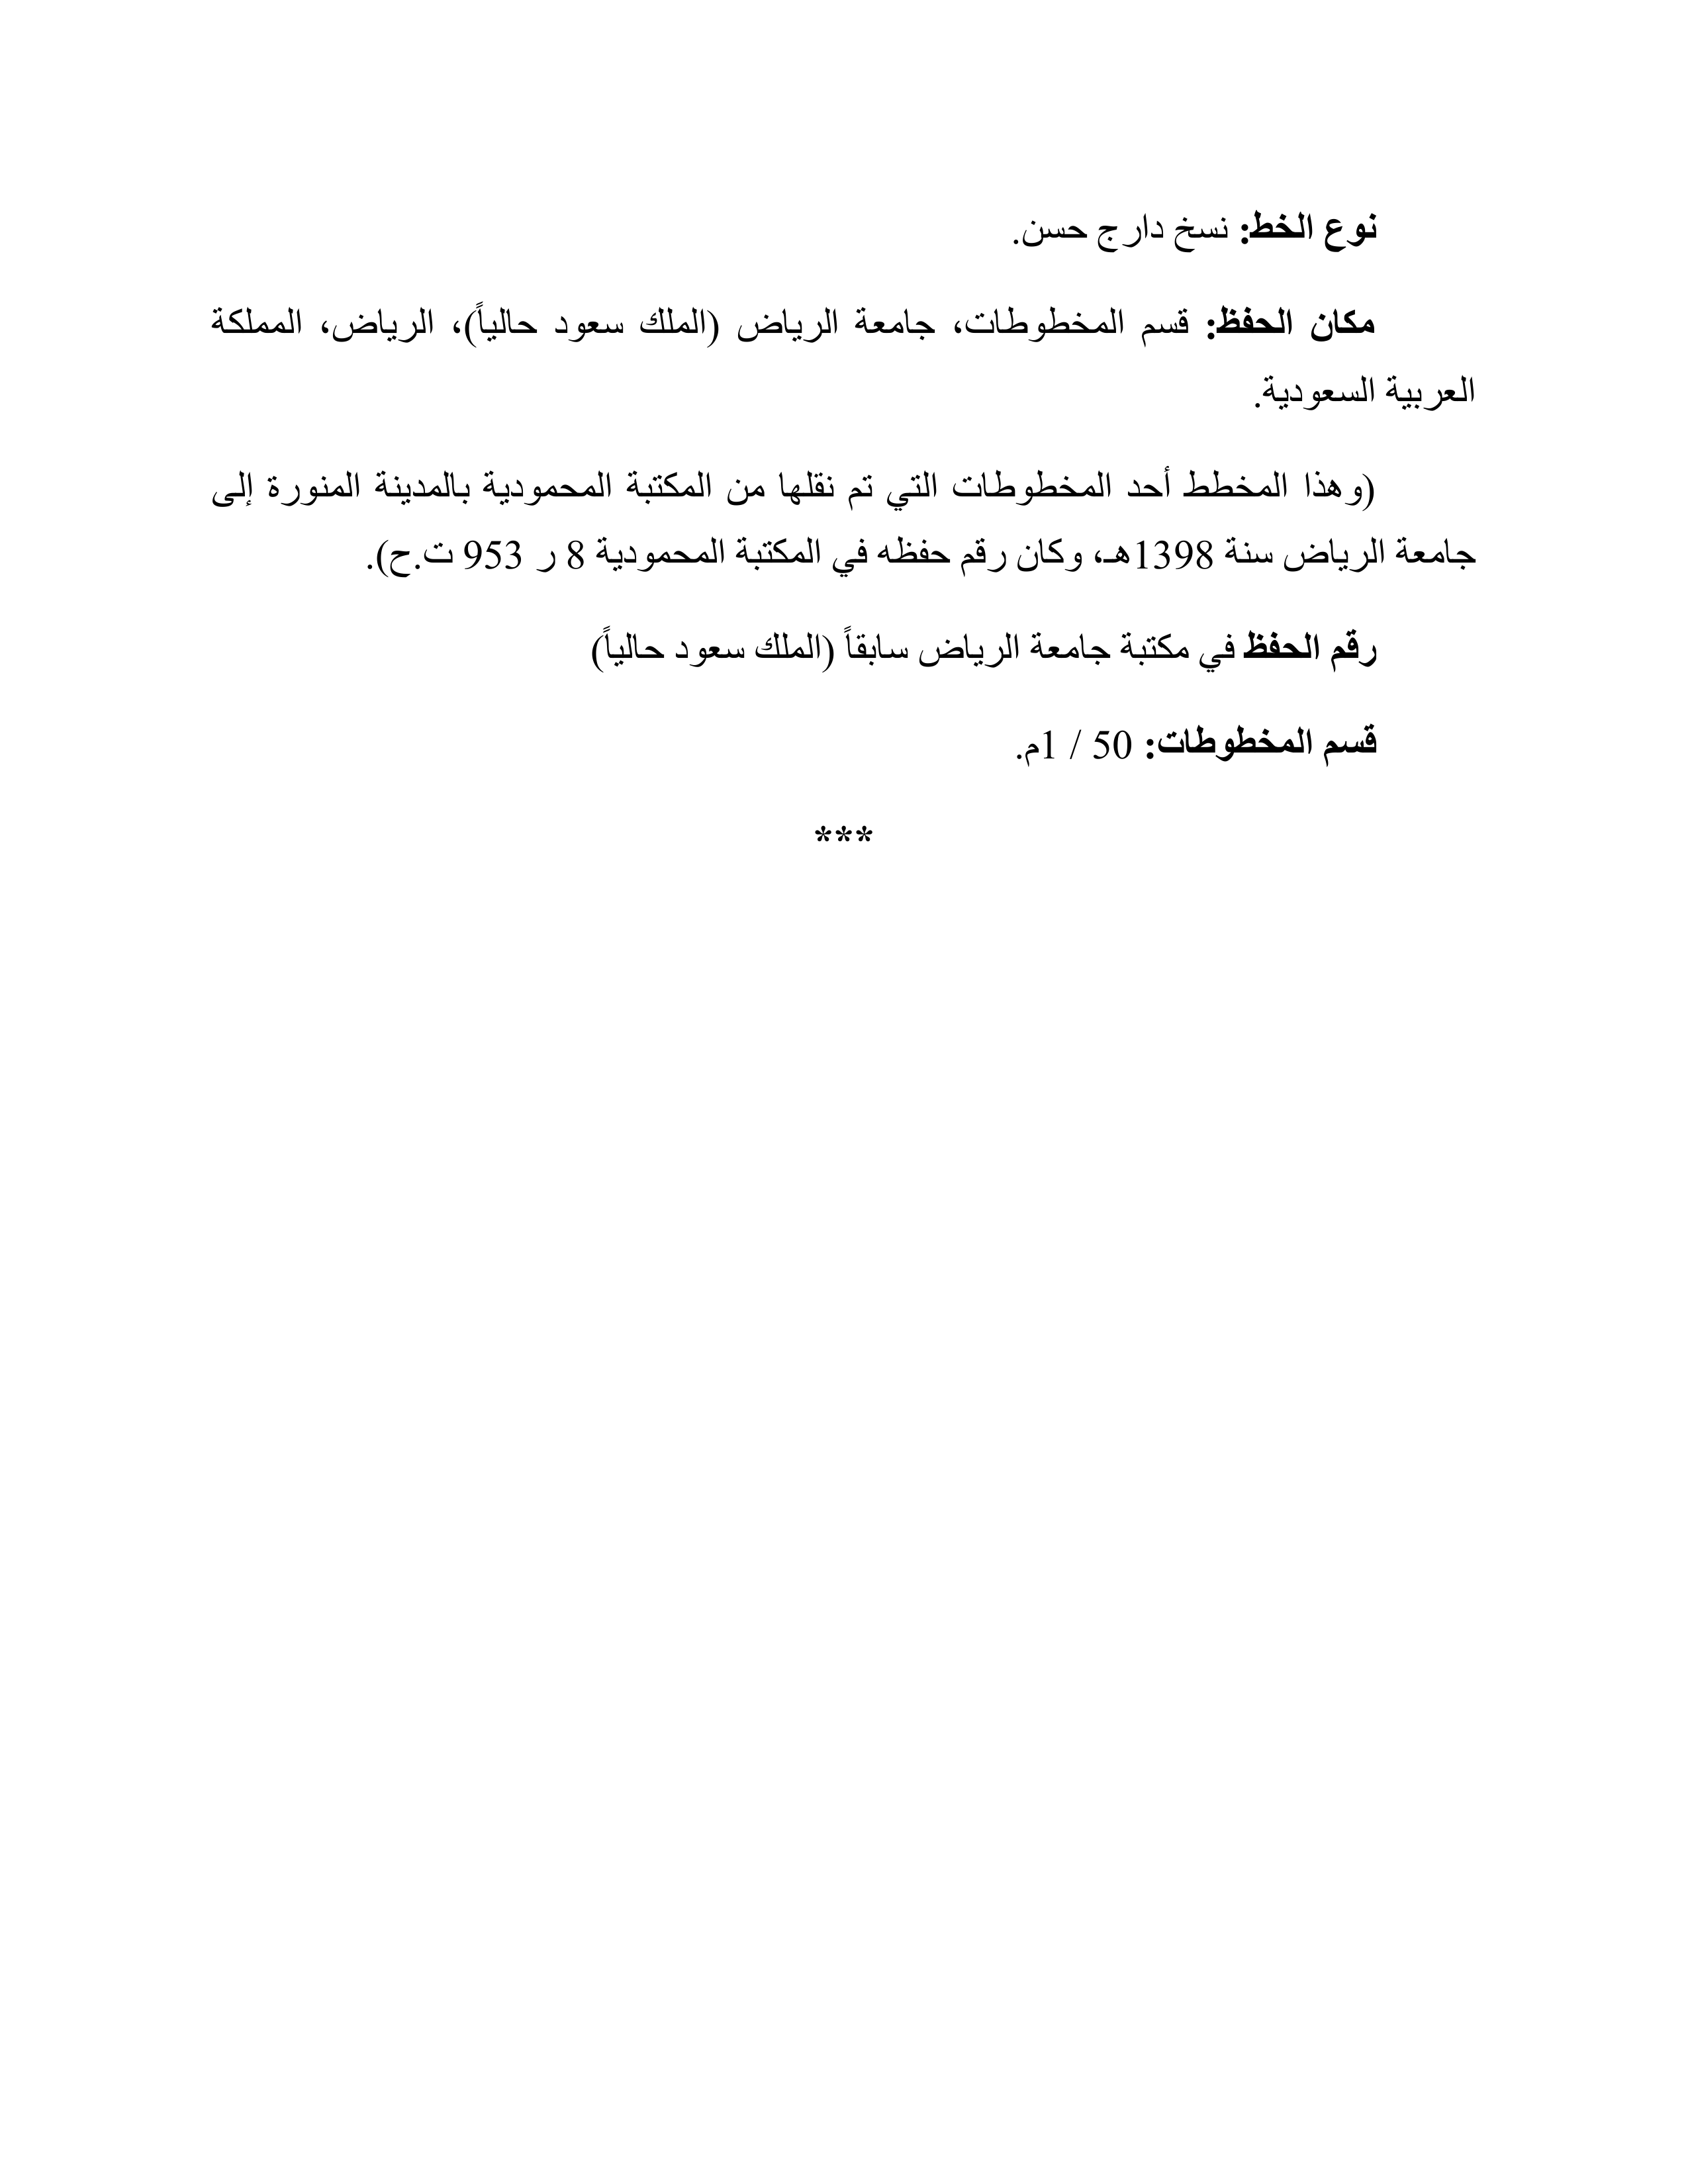 نوع الخط: نسخ دارج حسن.
مكان الحفظ: قسم المخطوطات، جامعة الرياض (الملك سعود حالياً)، الرياض، المملكة
العربية السعودية.
(وهذا المخطط أحد المخطوطات التي تم نقلها من المكتبة المحمودية بالمدينة المنورة إلى
جامعة الرياض سنة 1398هـ، وكان رقم حفظه في المكتبة المحمودية 8 ر 953 ت.ح).
رقم الحفظ في مكتبة جامعة الرياض سابقاً (الملك سعود حالياً)
قسم المخطوطات: 50 / 1م.
***